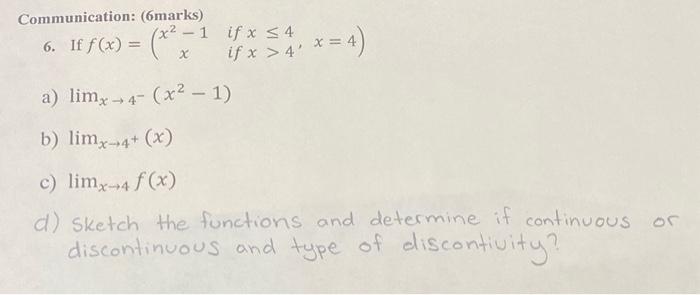 Communication: (6marks)
6. If f(x) = (x² − 1 if x ≤ 4
x if x > 4, x = 4)
a) limₓ→₄⁻ (x² − 1)
b) limₓ→₄⁺ (x)
c) limₓ→₄ f(x)
d) Sketch the functions and determine if continuous or
discontinuous and type of discontivity?